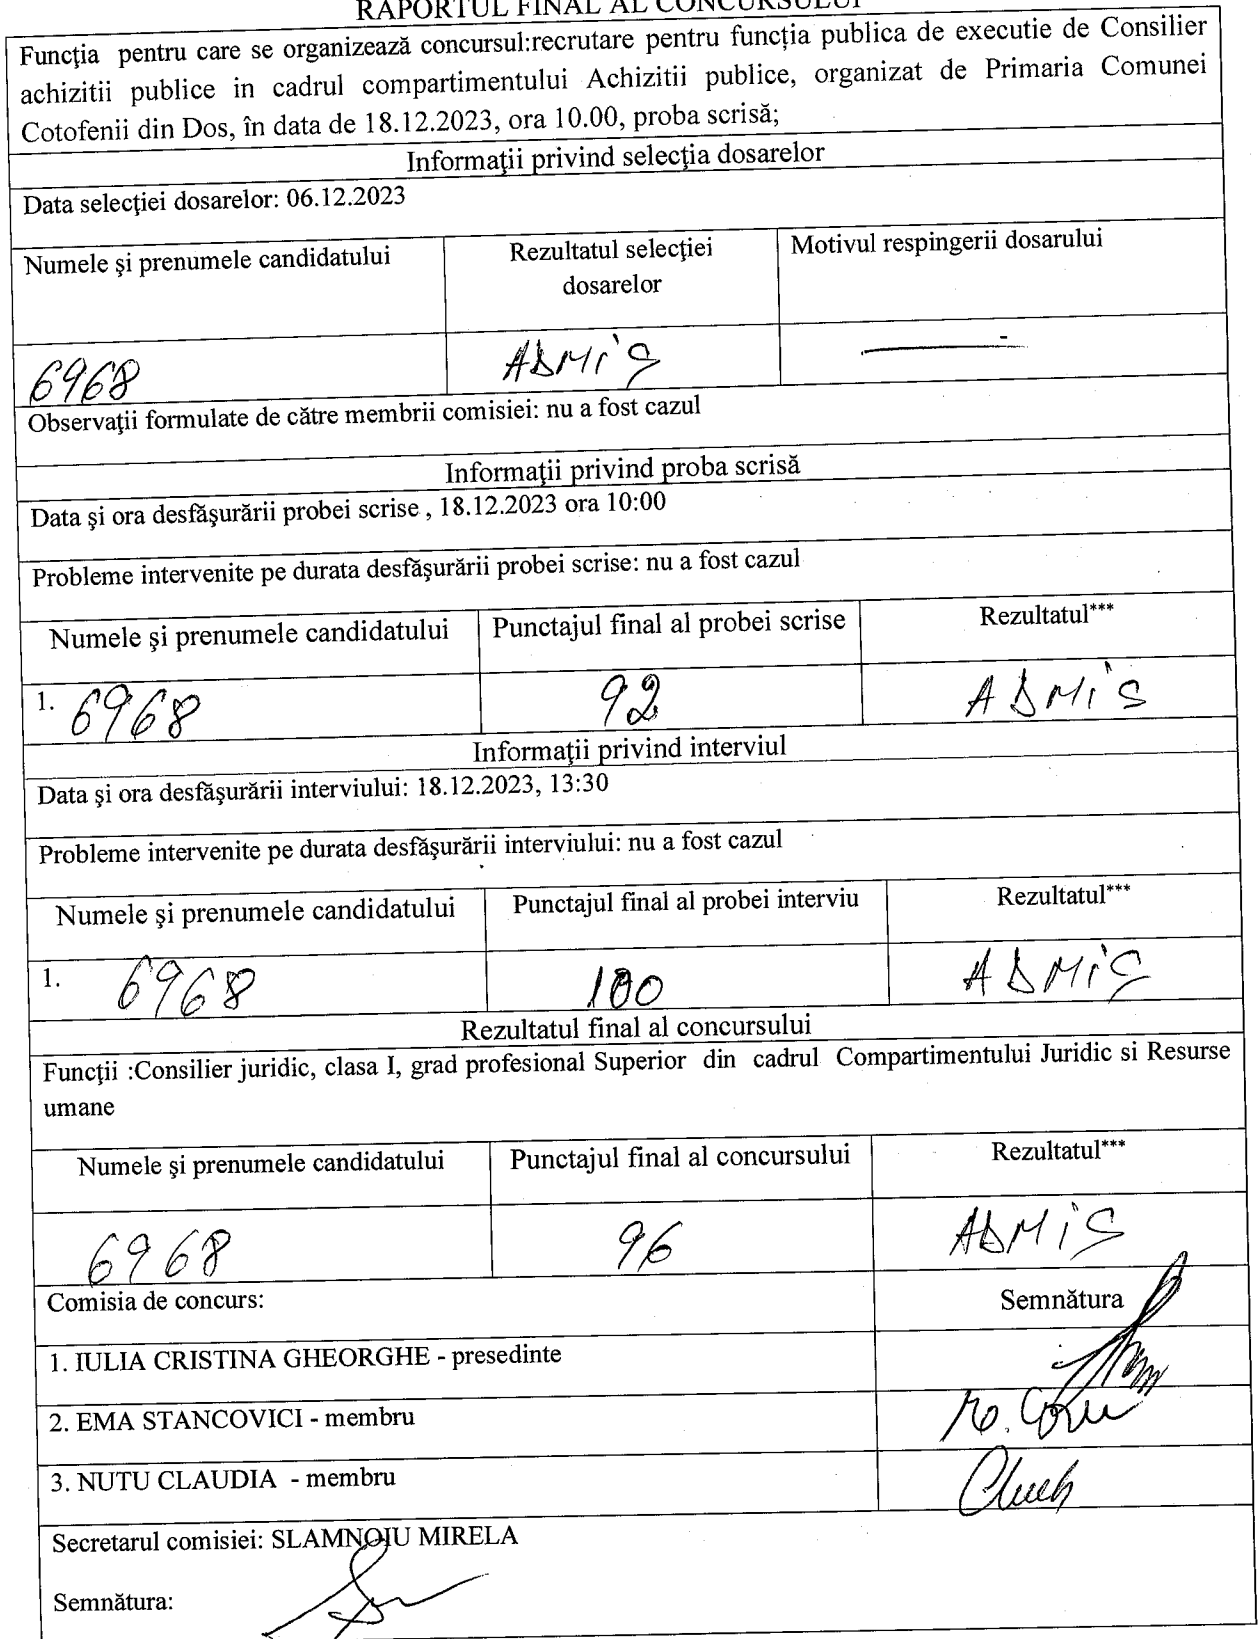 RAPORTUL FINAL AL CONCURSULUI
Funcţia pentru care se organizează concursul:recrutare pentru funcția publica de executie de Consilier
achizitii publice in cadrul compartimentului Achizitii publice, organizat de Primaria Comunei
Cotofenii din Dos, în data de 18.12.2023, ora 10.00, proba scrisă;
Informaţii privind selecţia dosarelor
Data selecţiei dosarelor: 06.12.2023
Numele şi prenumele candidatului Rezultatul selecţiei Motivul respingerii dosarului
dosarelor
6968 ADMiS
Observaţii formulate de către membrii comisiei: nu a fost cazul
Informaţii privind proba scrisă
Data şi ora desfăşurării probei scrise , 18.12.2023 ora 10:00
Probleme intervenite pe durata desfăşurării probei scrise: nu a fost cazul
Numele şi prenumele candidatului Punctajul final al probei scrise Rezultatul***
1. 6968 92 ADMiS
Informaţii privind interviul
Data şi ora desfăşurării interviului: 18.12.2023, 13:30
Probleme intervenite pe durata desfăşurării interviului: nu a fost cazul
Numele şi prenumele candidatului Punctajul final al probei interviu Rezultatul***
1. 6968 100 ADMiS
Rezultatul final al concursului
Funcţii :Consilier juridic, clasa I, grad profesional Superior din cadrul Compartimentului Juridic si Resurse
umane
Numele şi prenumele candidatului Punctajul final al concursului Rezultatul***
6968 96 ADMiS
Comisia de concurs: Semnătura
1. IULIA CRISTINA GHEORGHE - presedinte
2. EMA STANCOVICI - membru
3. NUTU CLAUDIA - membru
Secretarul comisiei: SLAMNOIU MIRELA
Semnătura: